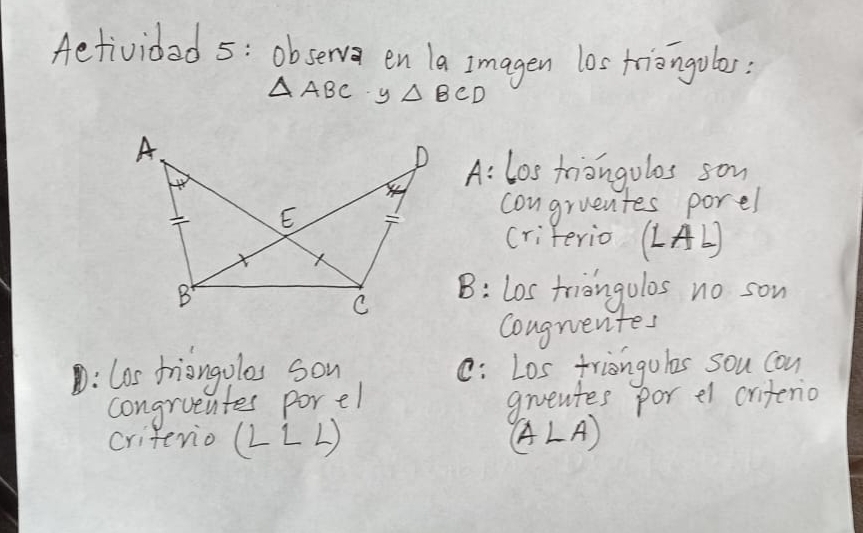 Actividad 5: Observa en la imagen los triángulos:
△ ABC y △ BCD
A
D
E
B
C
A: Los triángulos son
congruentes por el
criterio (LAL)
B: Los triángulos no son
congruentes
C: Los triángulos son con
gruentes por el criterio
(ALA)
D: Los triángulos son
congruentes por el
criterio (LLL)